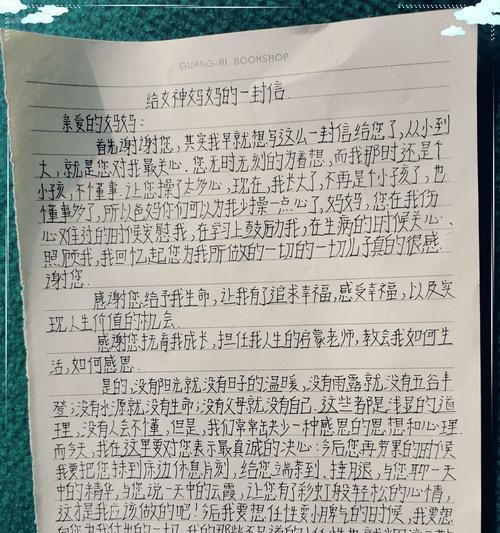 GUANG-AI BOOKSHOP
给女神妈妈的一封信
亲爱的妈妈：
首先谢谢您，其实我早就想写这么一封信给您了，从小到
大，就是您对我最关心。您无时无刻的为着想，而我那时还是个
小孩，不懂事，让您操了太多心，现在，我长大了，不再是个小孩了，也
懂事多了，所以爸妈你们可以为我少操一点心了，妈妈，您在我伤
心难过的时候安慰我，在学习上鼓励我，在生病的时候关心
照顾我，我回忆起您为我所做的一切的一切儿子真的很感
谢您.
感谢您给予我生命，让我有了追求幸福，感受幸福，以及实
现人生价值的机会.
感谢您抚育我成长，担任我人生的启蒙老师，教会我如何生
活，如何感恩.
是的，没有阳光就没有日子的温暖，没有雨露就没有五谷丰
登；没有水源就没有生命；没有父母就没有自己.这些都是浅显的道
理，没有人会不懂，但是，我们常常缺少一种感恩的思想和心理
而今天，我在这里要对您表示最真诚的决心：今后您再劳累的时候
我要把您扶到床边休息片刻，给您端茶到、捶腿，与您聊一天
中的精华，与您说一天中的云霞，让您有了彩虹般轻松的心情，
这才是我应该做的吧！今后我要想任性耍小脾气的时候，我要想